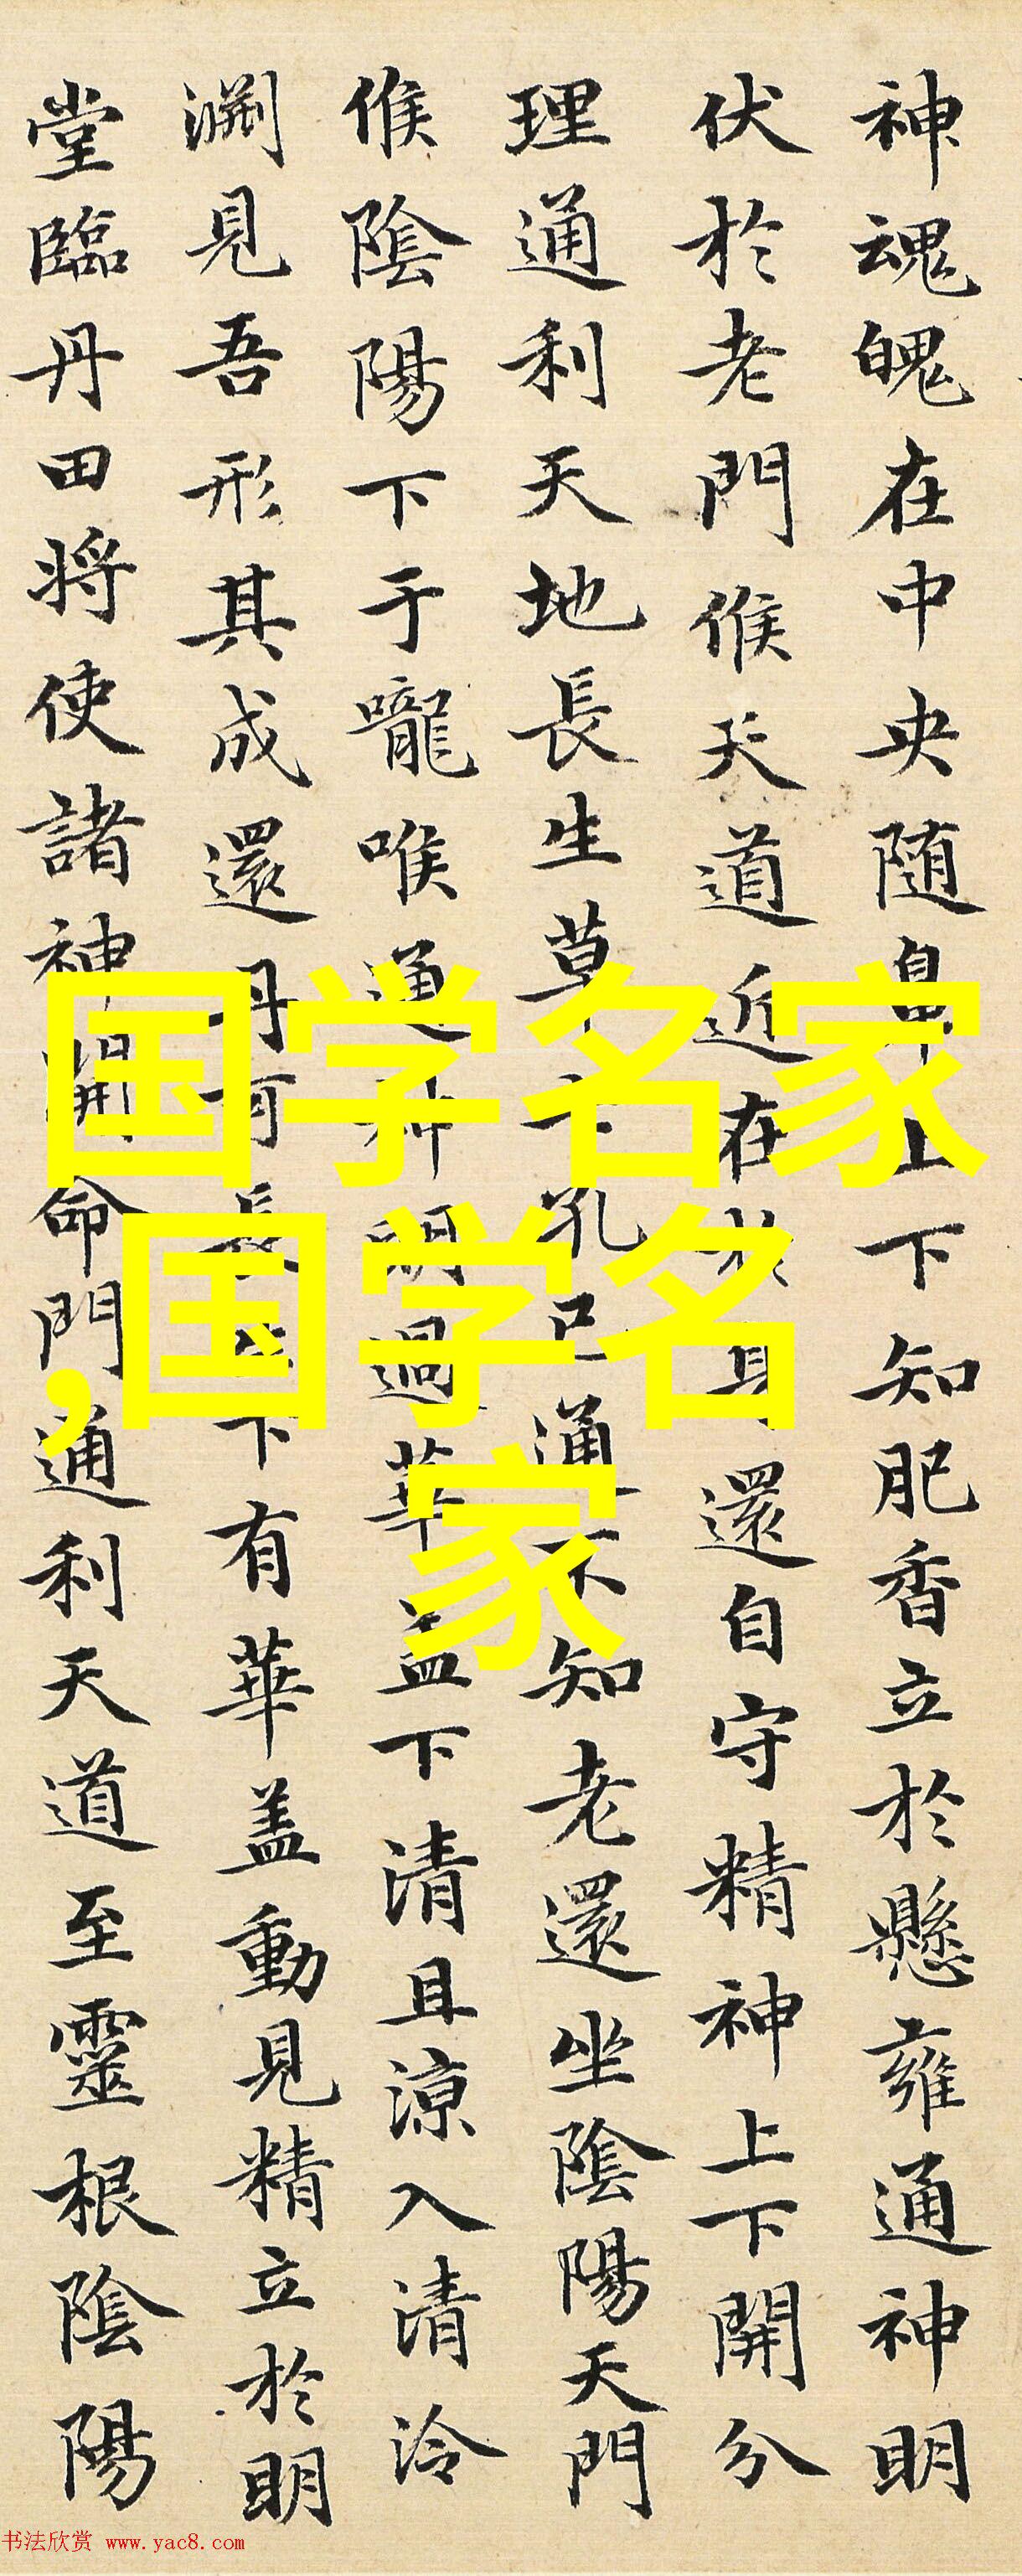 神魂魄在中央随鼻上下知肥香立於懸雍通神明
伏於老門候天道近在於身還自守精神上下開分
理通利天地長生草七孔已通不知老還坐陰陽天門
候陰陽下于嚨喉通神明過華盖下清且涼入清泠
淵見吾形其成還丹可長生下有華盖動見精立於明
堂臨丹田将使諸神開命門通利天道至靈根陰陽
国学名家
,国学名
家
书法欣赏 www.yac8.com